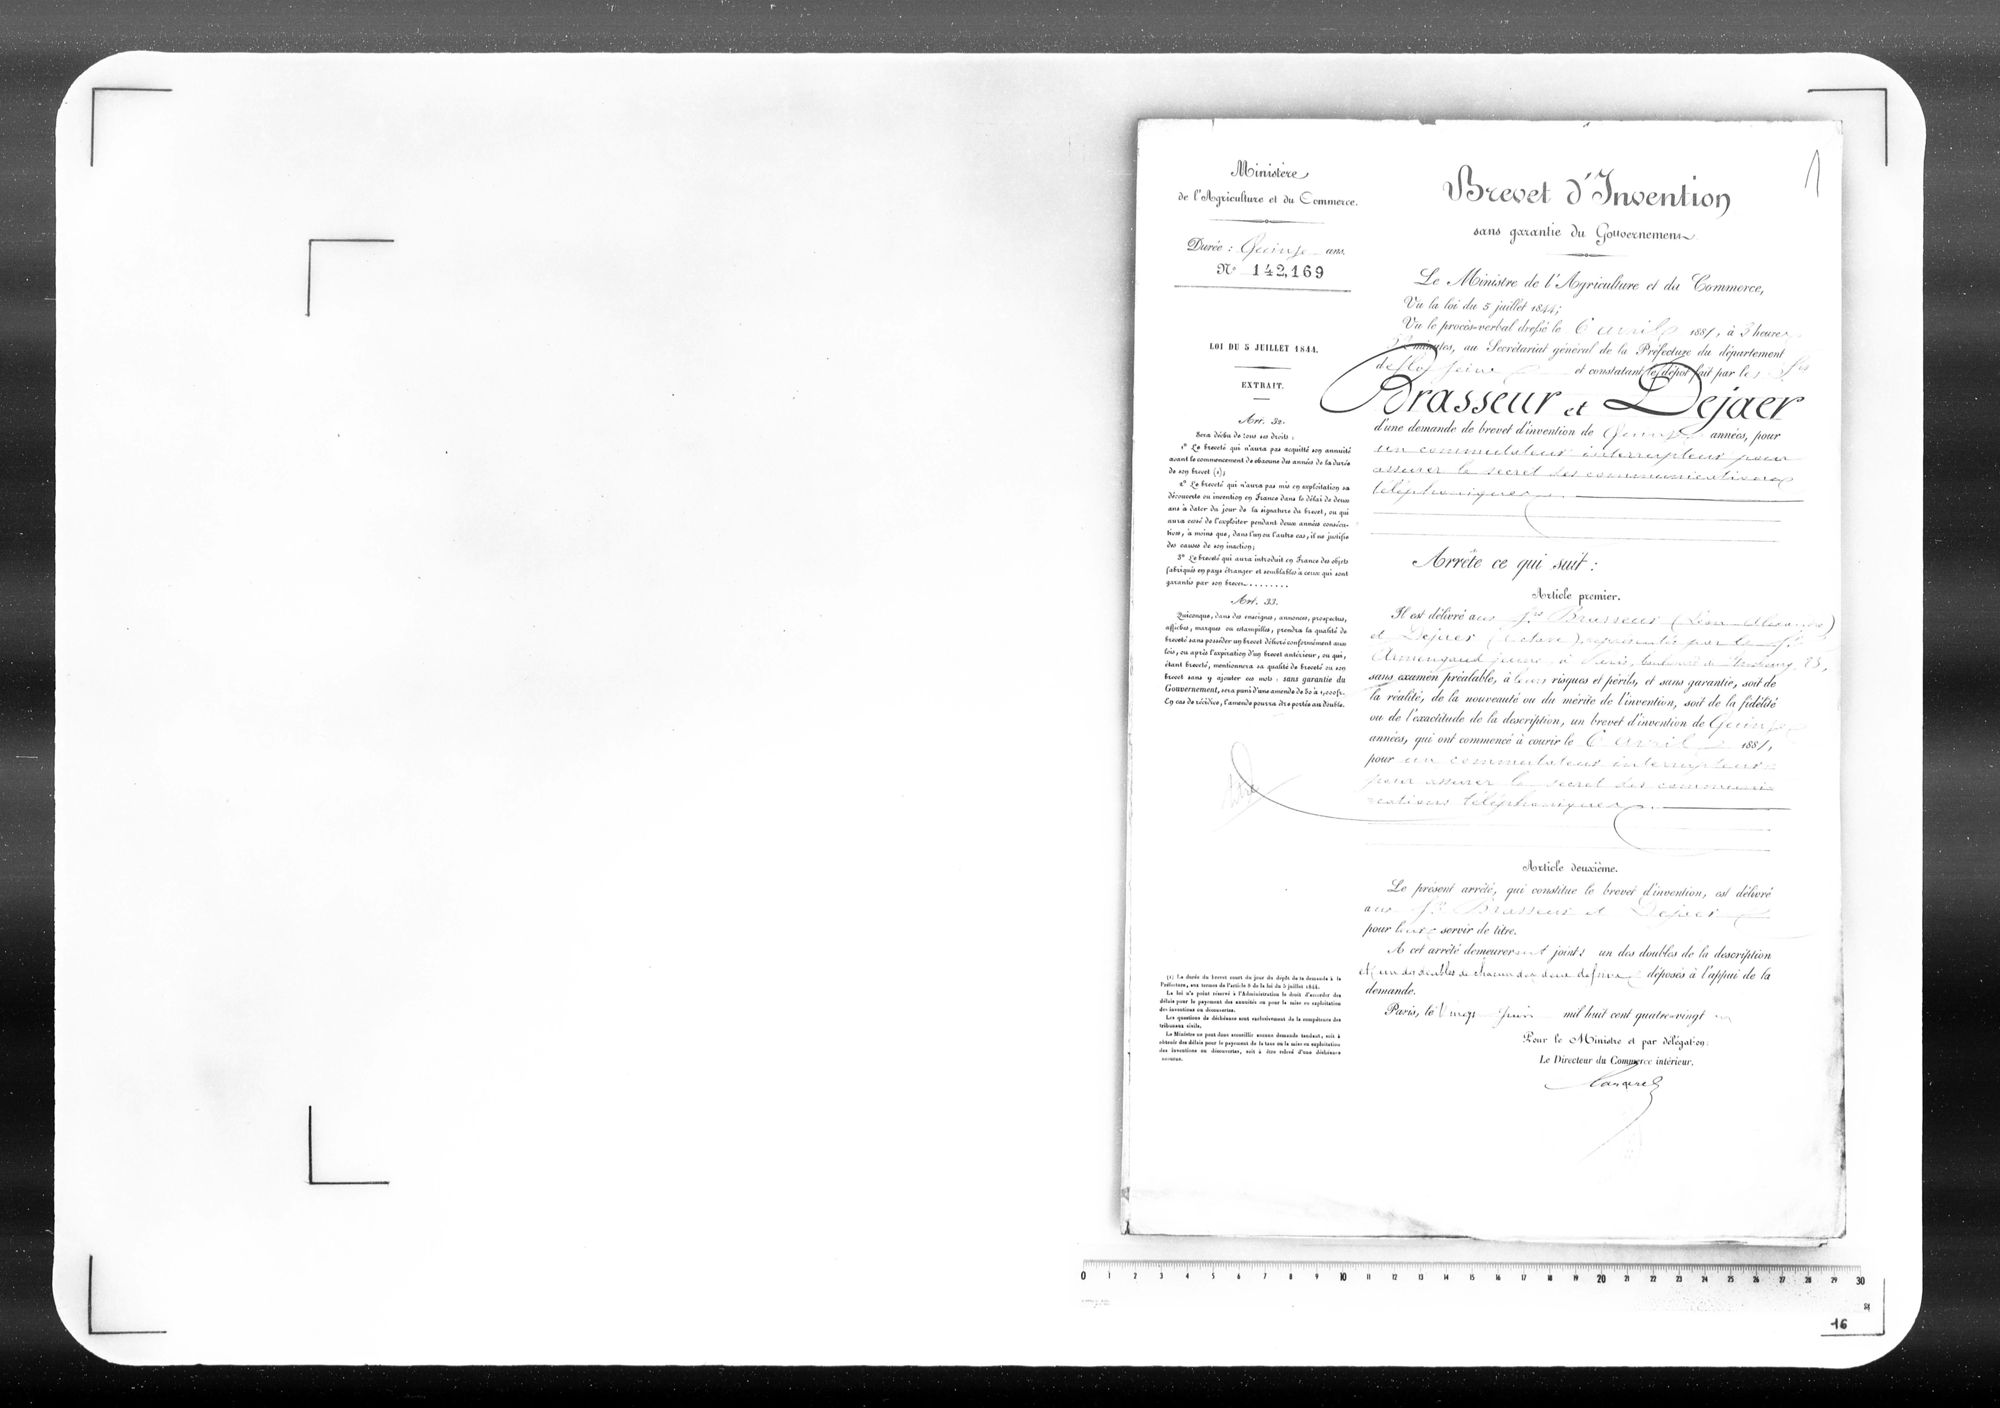 Ministère
de l'Agriculture et du Commerce.
Durée : Quinze ans.
N° 142,169
LOI DU 5 JUILLET 1844.
EXTRAIT.
Art. 32.
Sera déchu de tous ses droits :
1° Le breveté qui n'aura pas acquitté son annuité
avant le commencement de chacune des années de la durée
de son brevet (1);
2° Le breveté qui n'aura pas mis en exploitation sa
découverte ou invention en France dans le délai de deux
ans à dater du jour de la signature du brevet, ou qui
aura cessé de l'exploiter pendant deux années consécu-
tives, à moins que, dans l'un ou l'autre cas, il ne justifie
des causes de son inaction;
3° Le breveté qui aura introduit en France des objets
fabriqués en pays étranger et semblables à ceux qui sont
garantis par son brevet........
Art. 33.
Quiconque, dans des enseignes, annonces, prospectus,
affiches, marques ou estampilles, prendra la qualité de
breveté sans posséder un brevet délivré conformément aux
lois, ou après l'expiration d'un brevet antérieur, ou qui,
étant breveté, mentionnera sa qualité de breveté ou son
brevet sans y ajouter ces mots : sans garantie du
Gouvernement, sera puni d'une amende de 50 à 1,000 fr.
En cas de récidive, l'amende pourra être portée au double.
(1) La durée du brevet court du jour du dépôt de la demande à la
Préfecture, aux termes de l'article 8 de la loi du 5 juillet 1844.
La loi n'a point réservé à l'Administration le droit d'accorder des
délais pour le payement des annuités ou pour la mise en exploitation
des inventions ou découvertes.
Les questions de déchéance sont exclusivement de la compétence des
tribunaux civils.
Le Ministre ne peut donc accueillir aucune demande tendant, soit à
obtenir des délais pour le payement de la taxe ou la mise en exploitation
des inventions ou découvertes, soit à être relevé d'une déchéance
encourue.
1
Brevet d'Invention
sans garantie du Gouvernement
Le Ministre de l'Agriculture et du Commerce,
Vu la loi du 5 juillet 1844;
Vu le procès-verbal dressé le 6 avril 1881, à 3 heures
minutes, au Secrétariat général de la Préfecture du département
de la Seine et constatant le dépôt fait par les Srs
Brasseur et Dejaer
d'une demande de brevet d'invention de Quinze années, pour
un commutateur interrupteur pour
assurer le secret des communications
téléphoniques.
Arrête ce qui suit :
Article premier.
Il est délivré aux Srs Brasseur (Léon Alexandre)
et Dejaer (Octave), représentés par le Sr
Armengaud jeune, à Paris, boulevard de Strasbourg, 23,
sans examen préalable, à leurs risques et périls, et sans garantie, soit de
la réalité, de la nouveauté ou du mérite de l'invention, soit de la fidélité
ou de l'exactitude de la description, un brevet d'invention de Quinze
années, qui ont commencé à courir le 6 avril 1881,
pour un commutateur interrupteur
pour assurer le secret des communi-
cations téléphoniques.
Article deuxième.
Le présent arrêté, qui constitue le brevet d'invention, est délivré
aux Srs Brasseur et Dejaer
pour leur servir de titre.
A cet arrêté demeureront joints un des doubles de la description
et un des doubles de chacun des deux dessins déposés à l'appui de la
demande.
Paris, le Vingt Juin mil huit cent quatre-vingt un
Pour le Ministre et par délégation :
Le Directeur du Commerce intérieur.
0 1 2 3 4 5 6 7 8 9 10 11 12 13 14 15 16 17 18 19 20 21 22 23 24 25 26 27 28 29 30
16